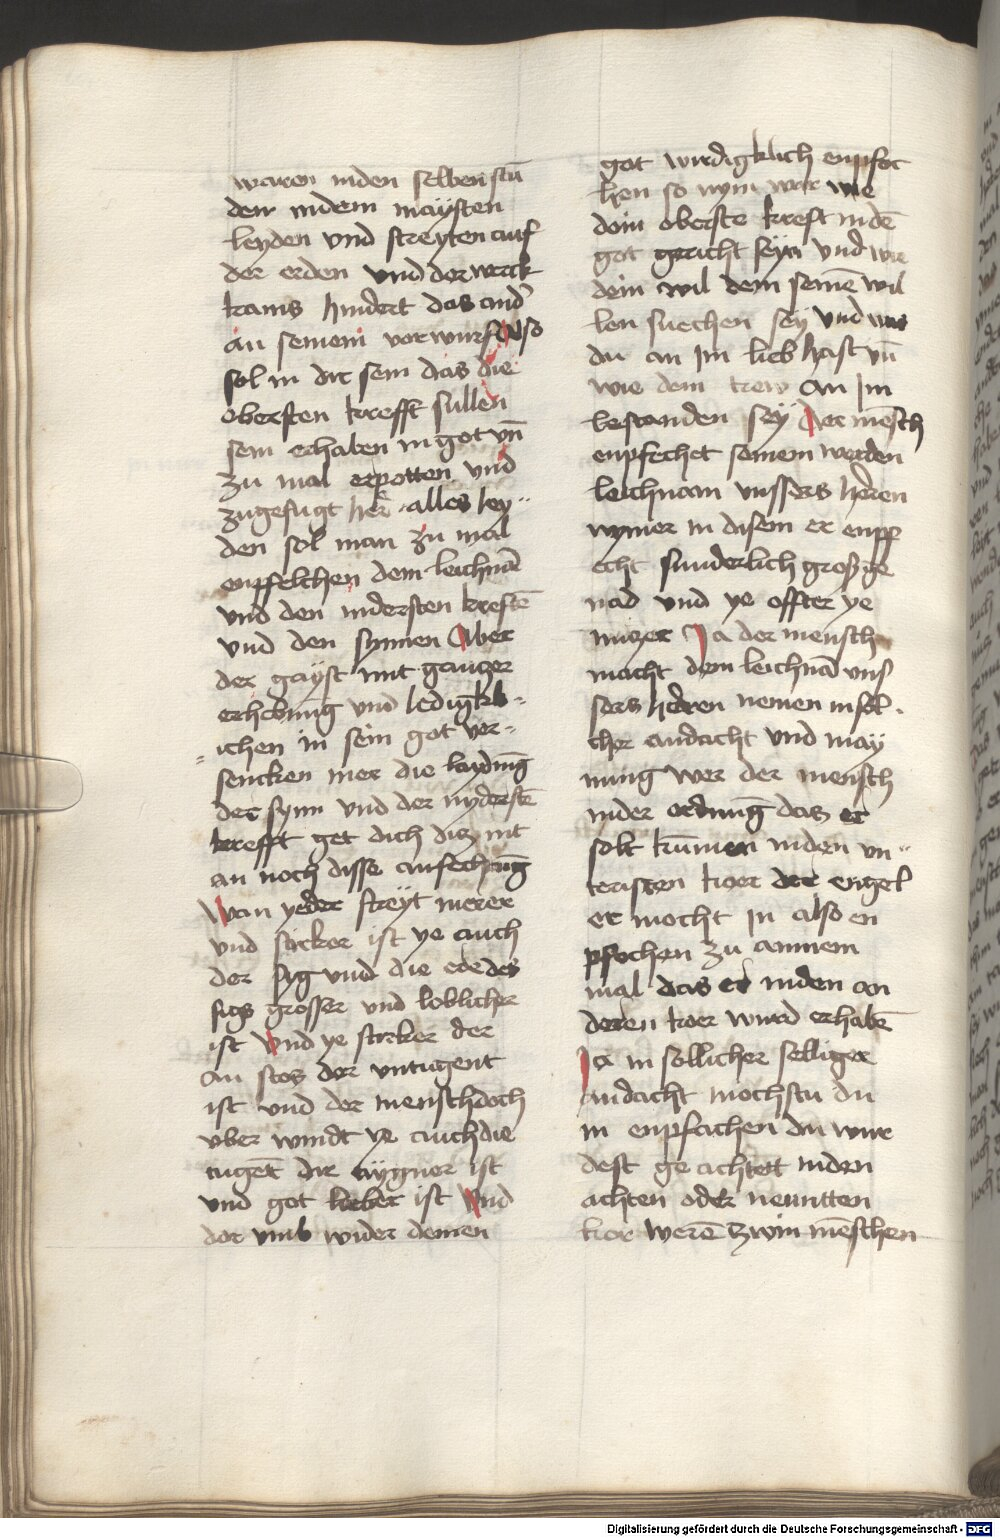 waren inden selben stū
den indem maÿsten
leyden vnd streyten auf
der erden vnd der werck
kains hindert das and̄
an seinem vorwurf Also
sol in dir sein das die
obersten krefft sullen
sein erhaben in got vn̄
zu mal erpotten vnd
zugefugt her alles ley
den sol man zu mal
enpfelchen dem leichnā
vnd den indersten kreftē
vnd den synnen Aber
der gaÿst mit gantzer
erhebung vnd ledigkl
ichen in sein got ver
sencken mer die laydung
der synn vnd der nyderstē
krefft get dich diz nit
an noch disse anfechtung
Wan yeder streyt merer
vnd stercker ist ye auch
der syg vnd die ere des
sigs grosser vnd loblicher
ist Vnd ye stercker der
an stos der vntugent
ist vnd der mensch doch
vber windt ye auch die
tuget̄ dir aygner ist
vnd got lieber ist Vnd
dar vmb wider deinen
got wirdigklich enpfoc
hen so nym war wie
dein oberste kreft indē
got gericht seyn vnd wie
dein wil dem seinē wil
len suechen seÿ vnd was
du an Im lieb hast vn̄
wie dein trew an Im
bestanden seÿ Der mēsch
enpfechet seinem werden
leichnam vnssers heren
nymer in disem er enpf
echt sunderlich grosz ge
nad vnd ye offter ye
nutzer Ja der mensch
macht dem leichnā vns
sers heren nemen in sol
cher andacht vnd may
nung wer der mensch
inder ordnung das er
solt kūmen inden vn
tersten koer der engel
er mocht in also en
pfochen zu ainnem
mal das er inden an
deren koer wurd erhabē
Ja in sollicher selliger
andacht mochstu du
in enpfachen du wur
dest ge achtett inden
achten oder neuntten
kor werē zwin mēschen
Digitalisierung gefördert durch die Deutsche Forschungsgemeinschaft - DFG